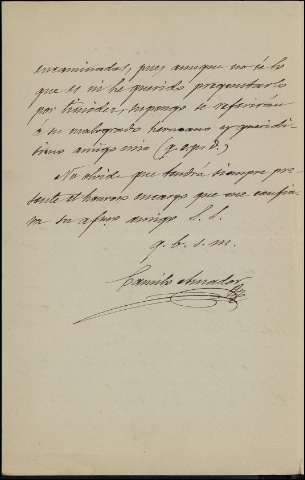 encaminadas, pues aunque no sé lo
que es ni he querido preguntarlo
por timidez, supongo se referirán
á su malogrado hermano y queridí-
simo amigo mio (q. e. p. d.)
No olvide que tendrá siempre pre-
sente el honroso encargo que me confia-
ra su afmo amigo S. S.
q. b. s. m.
Camilo Amador